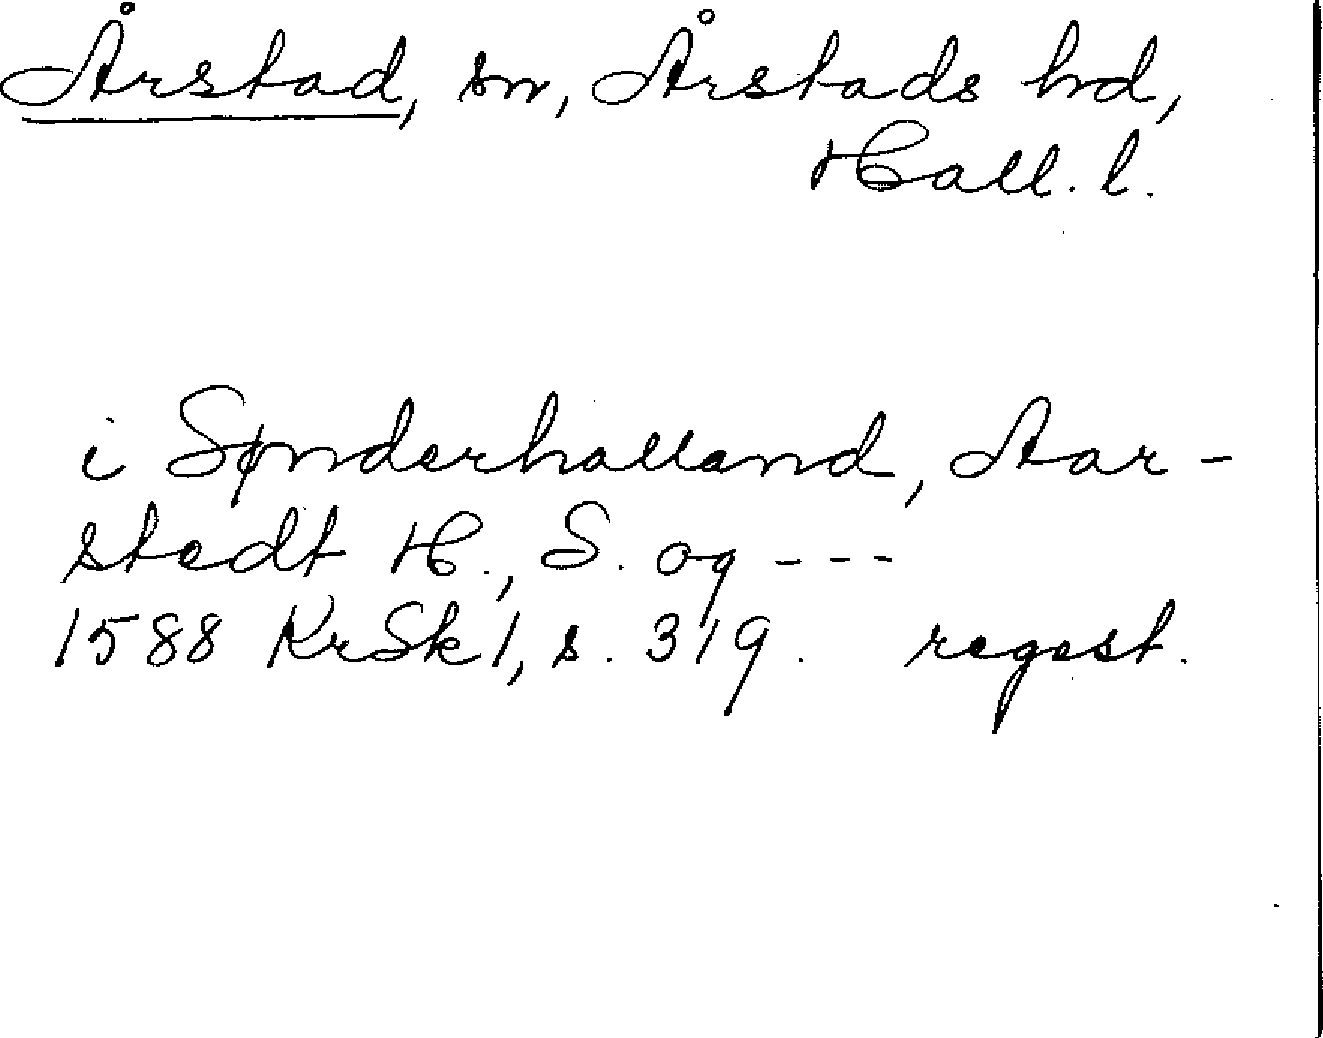 Årstad, sn, Årstads hd,
Hall. l.
i Sønderhalland, Aar-
stedt H., S. og ---
1588 KrSk 1, s. 319. regest.